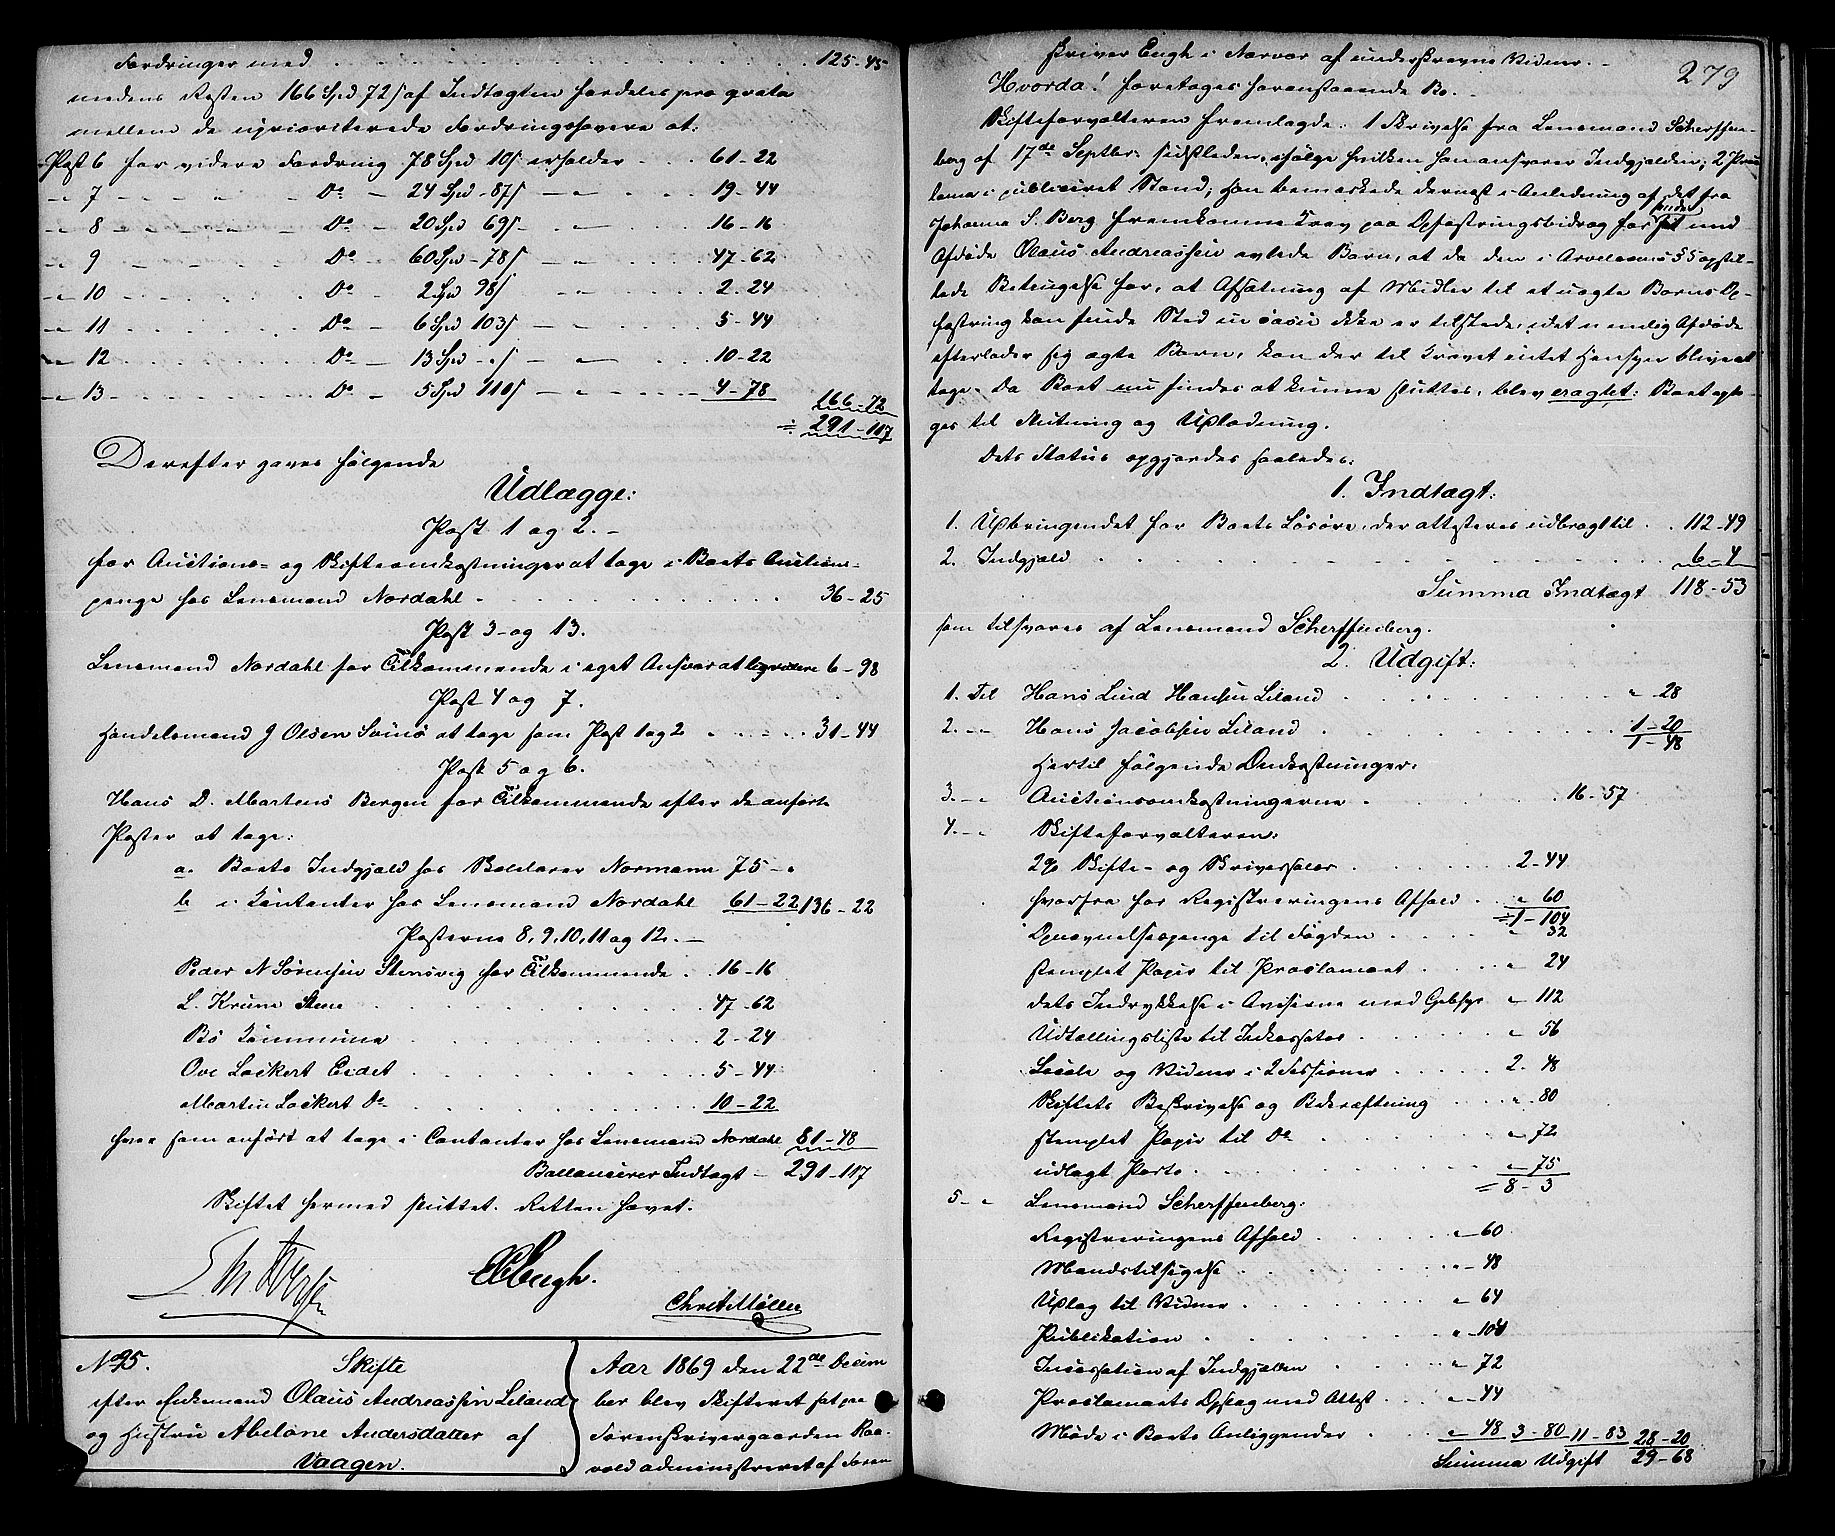 Fordringer med . . . 125-45
medens Resten 166 Spd 72 s af Indtægten fordeles pro qvota
mellem de uprioriterede Fordringshavere at:
Post 6 for videre Fordring 78 Spd 10 s erholder . . . 61-22
-"- 7 - - - Do - 24 Spd - 87 s - " - . . . 19-44
-"- 8 - - - Do - 20 Spd 69 s - " - . . . 16-16
-"- 9 - - - Do - 60 Spd - 78 s - " - . . . 47-62
-"- 10 - - - Do - 2 Spd 98 s - " - . . . 2-24
-"- 11 . . . Do - 6 Spd 103 s - " - . . . 5-44
-"- 12 . . . Do - 13 Spd - " s - " - . . . 10-22
-"- 13 . . . Do - 5 Spd 110 s - " - . . . 4-78
166-72
÷ 291-117
Derefter gaves følgende
Udlægge:
Post 1 og 2. -
for Auctions- og Skifteomkostninger at tage i Boets Auctions-
penge hos Lensmand Nordahl - . . . 36-25
Post 3- og 13.
Lensmand Nordahl for Tilkommende i eget Ansvar at liqvidere 6-98
Post 4 og 7.
Handelsmand J Olsen Svinø at tage som Post 1 og 2 . . . 31-44
Post 5 og 6.
Hans D. Martens Bergen for Tilkommende efter de anførte
Poster at tage:
a. Boets Indgjæld hos Normann 75-"
b i Contanter hos Lensmand Nordahl 61-22 136-22
Posterne 8, 9, 10, 11 og 12. -
Peder N Sørensen Steensvig for Tilkommende . 16-16
L. Krune Steen . . . 47-62
Bø Kommune . . . 2-24
Ove Lockert Eidet . . . 5-44
Martin Lockert Do . . . 10-22
hvee som anført at tage i Contanter hos Lensmand Nordahl 81-48
Ballancerer Indtægt - 291-117
Skiftet hermed sluttet. Retten hævet.
Engh.
Chr Møller
No 95. Skifte
efter Enkemand Olaus Andreassen Leland
og Hustru Abelone Andersdatter af
Vaagen.
Aar 1869 den 22de Decem
ber blev Skifteret sat paa
Sorenskrivergaarden Raa-
vold administreret af Soren
279
skriver Engh i Nærvær af underskrevne Vidner. -
Hvorda! foretoges foranstaaende Bo. -
Skifteforvalteren fremlagde: 1 Skrivelse fra Lensmand Scherffen-
berg af 17de Septbr. sidstleden, ifølge hvilken han ansvarer Indgjælden; 2 Proc
lama i publiceret Stand; han bemærkede dernæst i Anledning af det fra
Johanna S. Berg fremkomne Krav paa Opfostringsbidrag for sit med
Afdøde Olaus Andreassen avlede Barn, at da den i Arvelovens § 5 opstil-
lede Betingelse for, at Afsætning af Midler til et uægte Barns Op-
fostring kan finde Sted in casu ikke er tilstede, idet nemlig Afdøde
efterlader sig ægte Børn, kan der til Kravet intet Hensyn blive at
tage. Da Boet nu findes at kunne sluttes, blev eragtet: Boet opta-
ges til Slutning og Udlodning.
Dets Status opgjordes saaledes:
1. Indtægt:
1. Udbringendet for Boets Løsøre, der attesteres udbragt til . . 112-49
2. Indgjæld . . . 6-4
Summa Indtægt 118-53
som tilsvares af Lensmand Scherffenberg.
2. Udgift:
1. Til Hans Lind Hansen Leland . . . " 28
2. - " Hans Jacobsen Leland . . . 1-20
1-48
Hertil følgende Omkostninger:
3. - " Auctionsomkostningerne . . . 16-57
4. - " Skifteforvalteren:
2% Skifte- og Skriversalær . . . 2-44
hvorfra for Registreringens Afhold . . " 60
÷ 1-104
Opnævnelsespenge til Fogden . . . " 32
stemplet Papir til Proclamaet . . . " 24
dets Indrykkelse i Aviserne med Gebyr " 112
Udtællingsliste til Inkassator . . . " 56
Locale og Vidner i 2 Sessioner . . . 2-48
Skiftets Beskrivelse og Bekræftning . . " 80
stemplet Papir til Do . . . " 72
udlagt Porto . . . " 75
= 8-3
5 - " Lensmand Scherffenberg:
Registreringens Afhold . . . " 60
Mandstilsigelse . . . " 48
Udlag til Vidner . . . " 64
Publikation . . . " 104
Incassation af Indgjælden . . . " 72
Proclamaets Opslag med Attest . . . " 44
Møde i Boets Anliggender . . . " 48 3-80 11-83 28-20
Summa Udgift 29-68